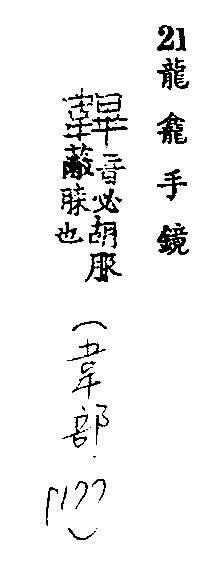 21龍龕手鏡
韠音必胡服
蔽膝也
(韋部.P177)